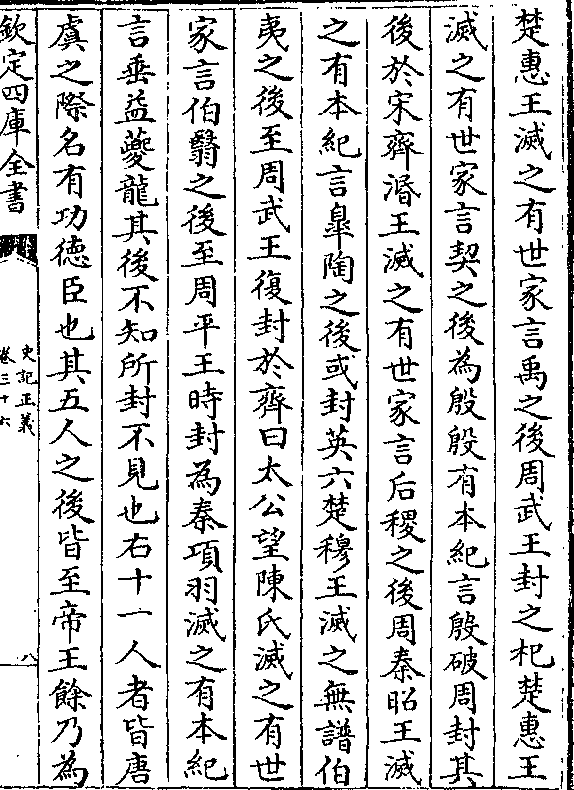 楚惠王滅之有世家言禹之後周武王封之杞楚惠王
滅之有世家言契之後為殷殷有本紀言殷破周封其
後於宋齊湣王滅之有世家言后稷之後周秦昭王滅
之有本紀言臯陶之後或封英六楚穆王滅之無譜伯
夷之後至周武王復封於齊曰太公望陳氏滅之有世
家言伯翳之後至周平王時封為秦項羽滅之有本紀
言垂益夔龍其後不知所封不見也右十一人者皆唐
虞之際名有功徳臣也其五人之後皆至帝王餘乃為
欽定四庫全書
史記正義
卷三十六
八